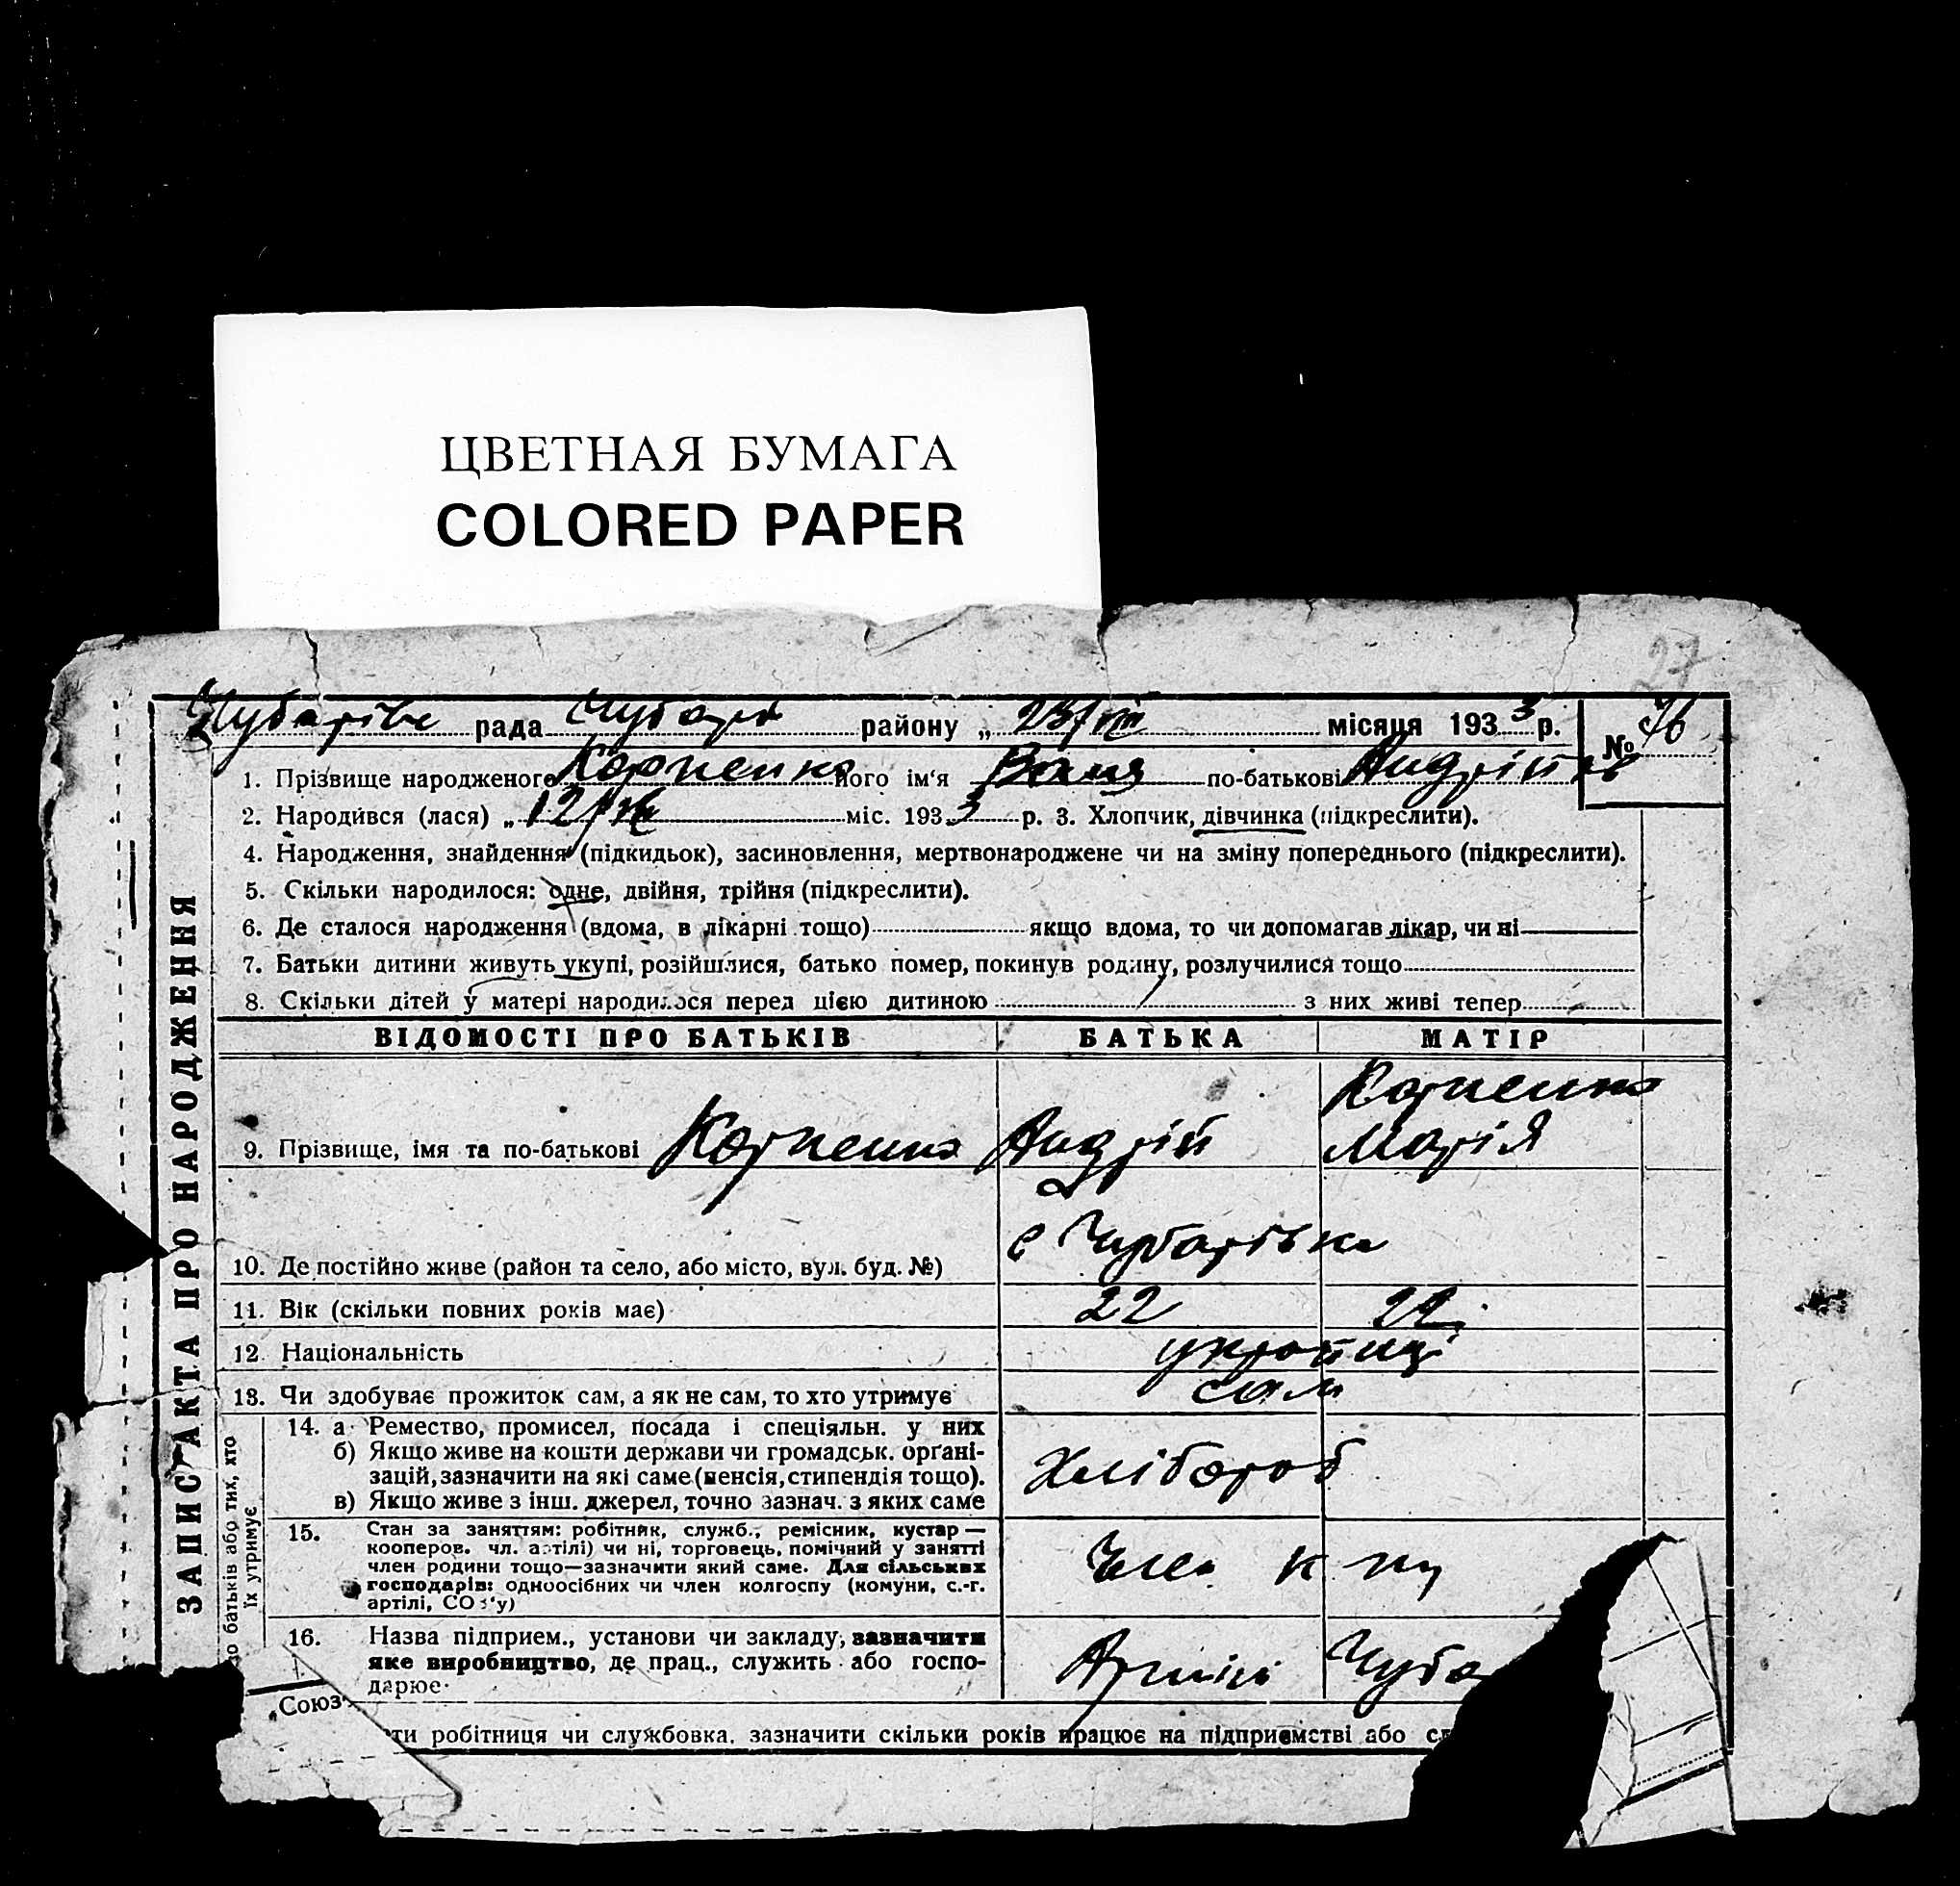 ЦВЕТНАЯ БУМАГА
COLORED PAPER
27
Чубарівс рада Чубарів району „ 23/VIII місяця 1933 р. № 76
1. Прізвище народженого Корпенко його ім‘я Валя по-батькові Андрійов
2. Народився (лася) „ 12/ міс. 1933 р. 3. Хлопчик, дівчинка (підкреслити).
4. Народження, знайдення (підкидьок), засиновлення, мертвонароджене чи на зміну попереднього (підкреслити).
5. Скільки народилося: одне, двійня, трійня (підкреслити).
6. Де сталося народження (вдома, в лікарні тощо) якщо вдома, то чи допомагав лікар, чи ні
7. Батьки дитини живуть укупі, розійшлися, батько помер, покинув родину, розлучилися тощо
8. Скільки дітей у матері народилося перед цією дитиною з них живі тепер
ЗАПИС АКТА ПРО НАРОДЖЕННЯ
ВІДОМОСТІ ПРО БАТЬКІВ БАТЬКА МАТІР
9. Прізвище, імя та по-батькові Корпенко Андрій Корпенко Марія
10. Де постійно живе (район та село, або місто, вул. буд. №) с Чубарівка
11. Вік (скільки повних років має) 22 22
12. Національність українці
13. Чи здобуває прожиток сам, а як не сам, то хто утримує сам
до батьків або тих, хто
їх утримує
14. а Ремество, промисел, посада і спеціяльн. у них
б) Якщо живе на кошти держави чи громадськ. орґані-
зацій, зазначити на які саме (пенсія, стипендія тощо).
в) Якщо живе з інш. джерел, точно зазнач. з яких саме
Хлібороб
15. Стан за заняттям: робітник, служб., ремісник, кустар —
кооперов. чл. артілі) чи ні, торговець, помічний у занятті
член родини тощо—зазначити який саме. Для сільських
господарів: одноосібних чи член колгоспу (комуни, с.-г.
артілі, СОЗ‘у)
Член к
16. Назва підприєм., установи чи закладу, зазначити
яке виробництво, де прац., служить або госпо-
дарює
Артілі Чуба
Союз
ти робітниця чи службовка, зазначити скільки років працює на підприємстві або сл